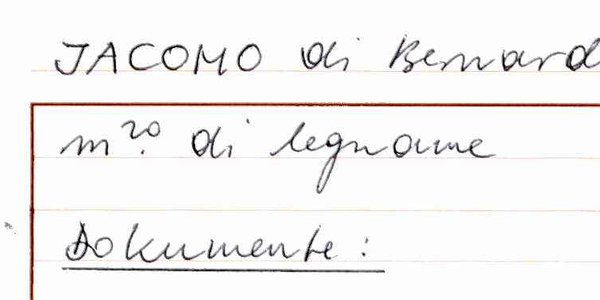 JACOMO di Bernard
m.ro di legname
Dokumente: